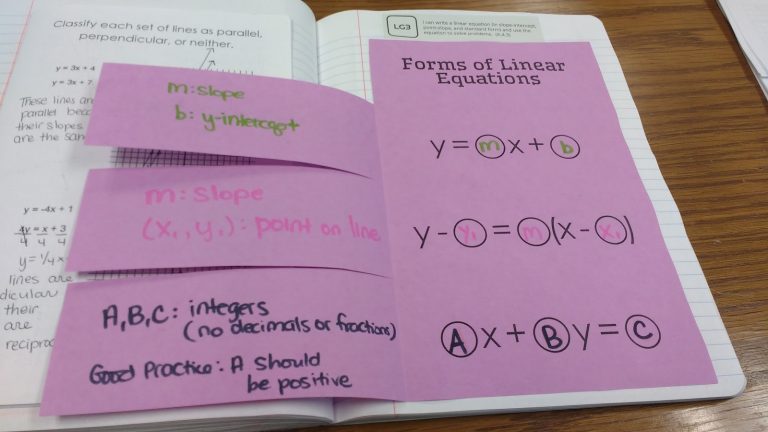 Classify each set of lines as parallel,
perpendicular, or neither.
y = 3x + 4
y = 3x + 7
These lines are
parallel
their slopes
are the
y = -4x + 1
4y = x + 3
4 4 4
y = 1/4x
lines are
their
are
m: slope
b: y-intercept
m: Slope
(x₁, y₁): point on line
A, B, C: integers
(no decimals or fractions)
Good Practice: A should
be positive
LG3
I can write a linear equation (in slope-intercept,
point-slope, and standard form) and use the
equation to solve problems.
Forms of Linear
Equations
y = m x + b
y - y₁ = m (x - x₁)
A x + B y = C